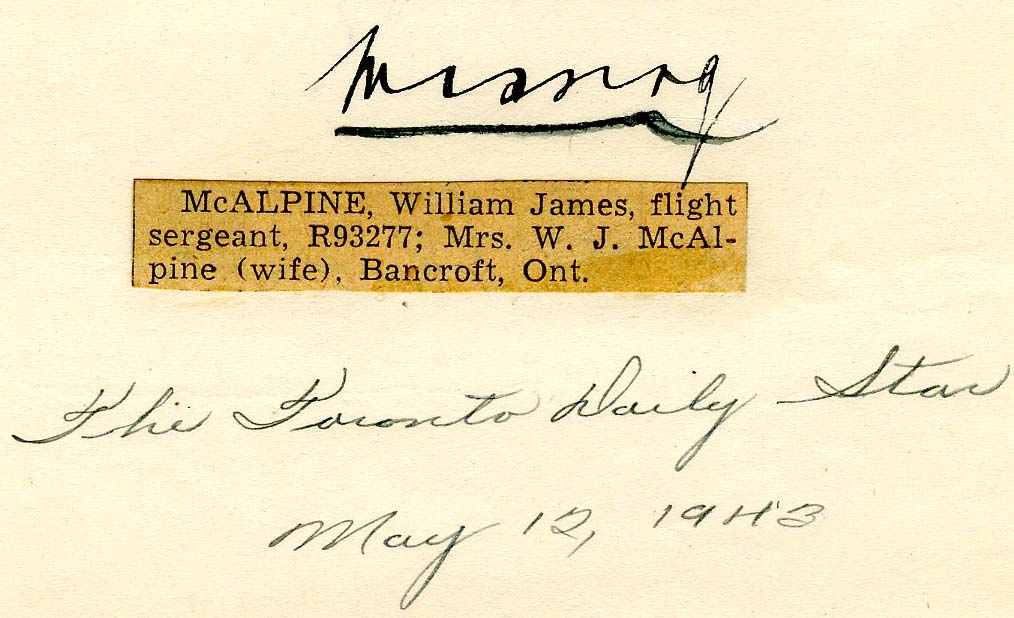 Missing
McALPINE, William James, flight
sergeant, R93277; Mrs. W. J. McAl-
pine (wife), Bancroft, Ont.
The Toronto Daily Star
May 12, 1943